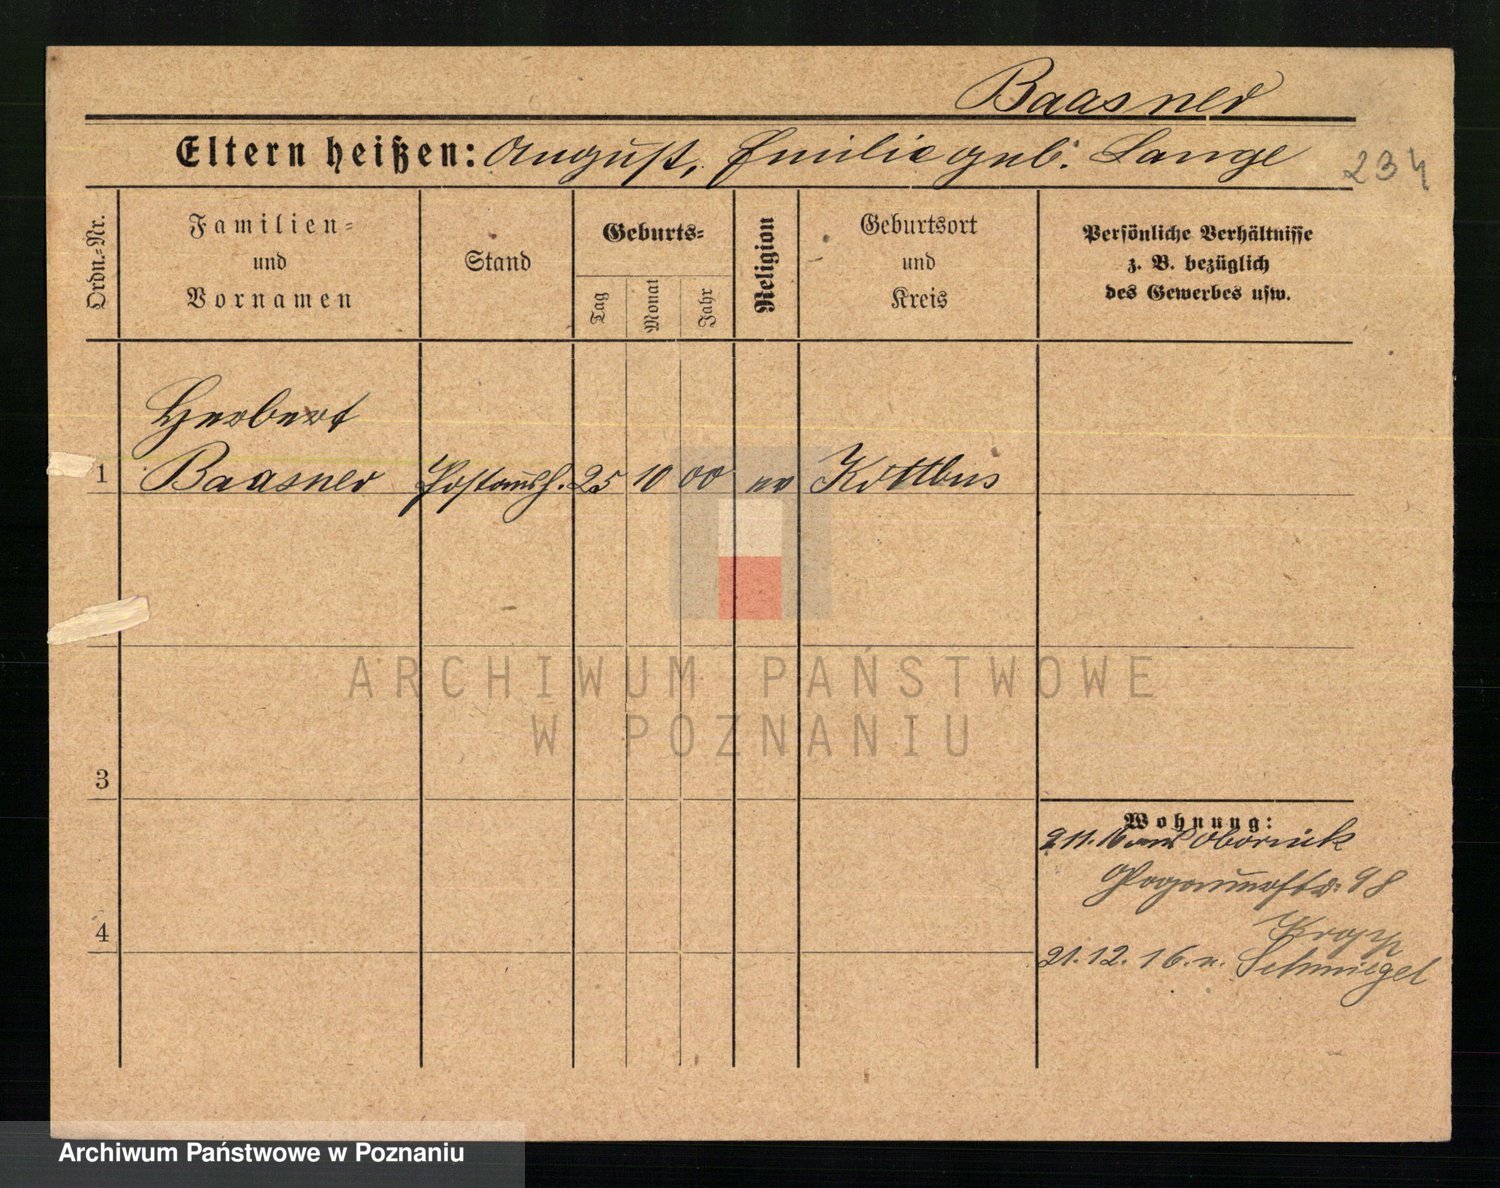 Baasner
Eltern heißen: August, Emilie geb. Lange
234
Ordn.-Nr.
Familien-
und
Vornamen
Stand
Geburts-
Tag
Monat
Jahr
Religion
Geburtsort
und
Kreis
Persönliche Verhältnisse
z. B. bezüglich
des Gewerbes usw.
Herbert
1 Baasner Postaush. 25 10 00 ev Kottbus
3
4
Wohnung:
2.11.16 aus Obornick
98
Kropp
21.12.16. n. Schmiegel
ARCHIWUM PAŃSTWOWE
W POZNANIU
Archiwum Państwowe w Poznaniu